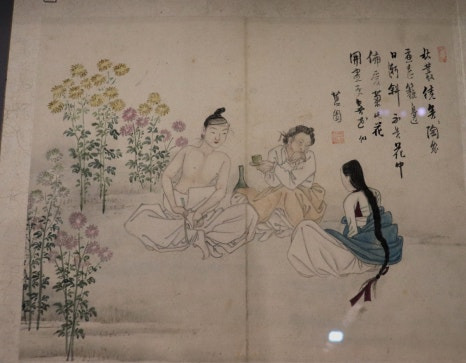 秋叢繞舍似陶家
遍遶籬邊
日漸斜不是花中
偏愛菊此花
開盡更無花
蕙園